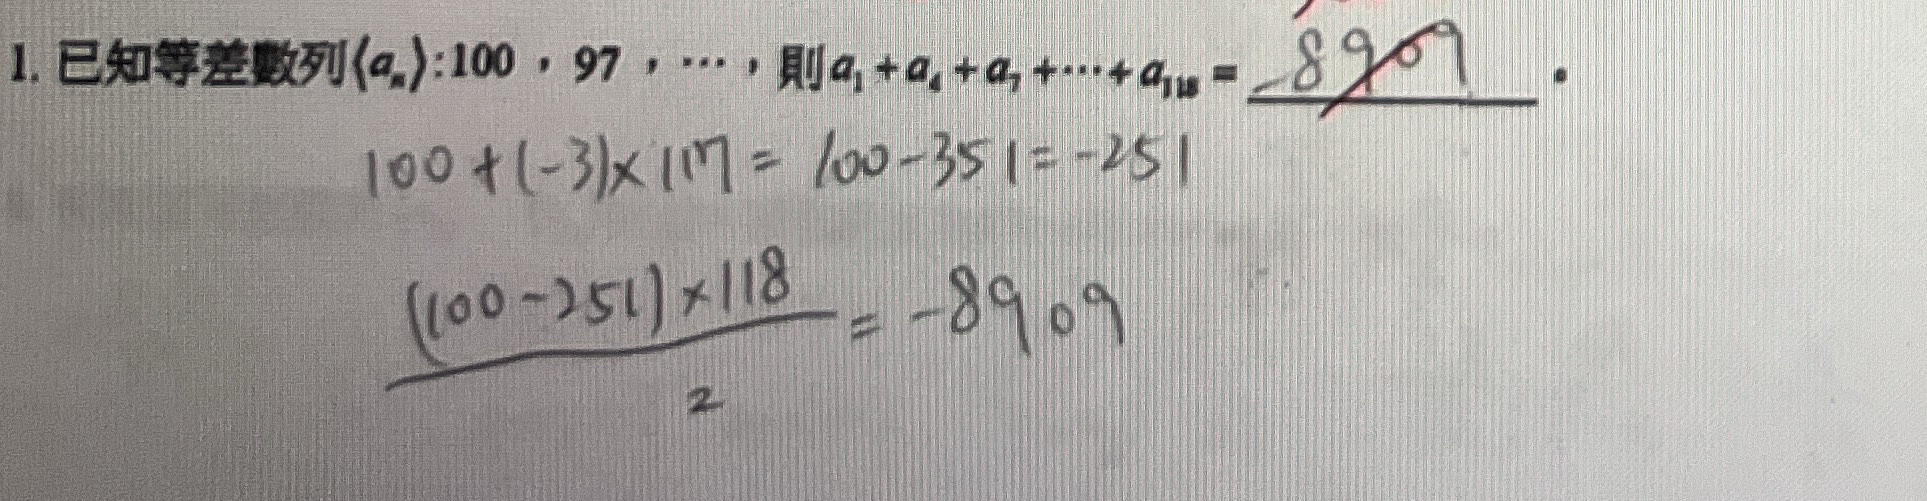 1. 已知等差數列⟨aₙ⟩:100,97,⋯,則a₁+a₄+a₇+⋯+a₁₁₈= -8909 。
100+(-3)×117= 100-351=-251
(100-251)×118
= -8909
2